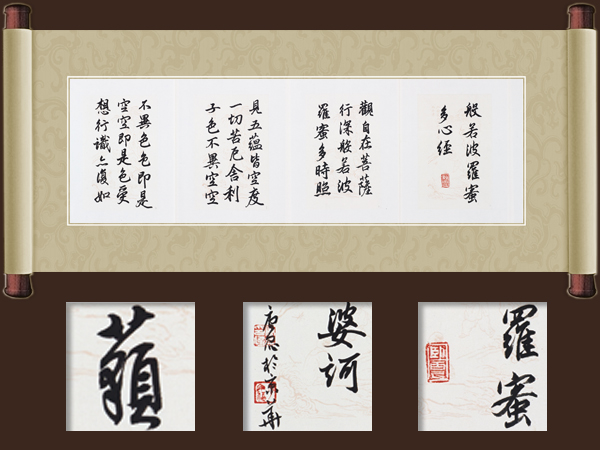 般若波羅蜜
多心經
觀自在菩薩
行深般若波
羅蜜多時照
見五蘊皆空度
一切苦厄舍利
子色不異空空
不異色色即是
空空即是色受
想行識亦復如
婆訶
於京華
羅蜜